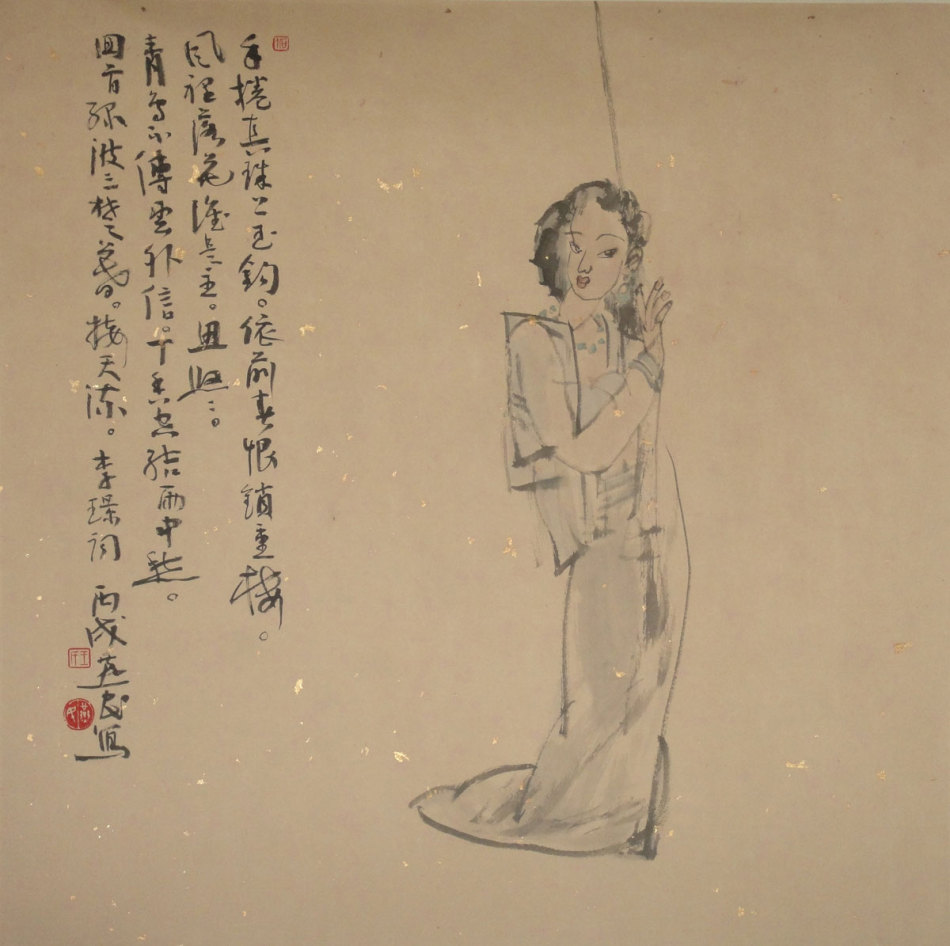 手捲真珠上玉鈎。依前春恨鎖重樓。
風裡落花誰是主。思悠々。
青鳥不傳雲外信。丁香空結雨中愁。
回首綠波三楚暮。接天流。李璟詞 丙戌 民寫